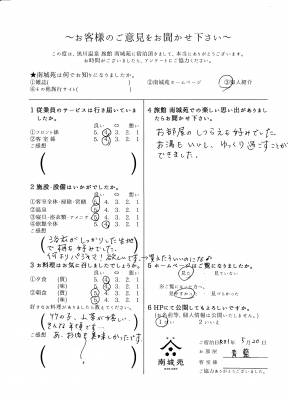 ～お客様のご意見をお聞かせ下さい～
この度は、黒川温泉 旅館 南城苑に宿泊頂きまして、本当にありがとうございます。
お時間がございましたら、アンケートにご協力ください。
★南城苑は何でお知りになりましたか。
①雑誌( ) ②南城苑ホームページ ③個人紹介
④その他旅行サイト( )
1 従業員のサービスは行き届いていましたか。
良い 悪い
①フロント係 5. 4. 3. 2. 1
②客室係 5. 4. 3. 2. 1
ご感想
2 施設・設備はいかがでしたか。
良い 悪い
①客室全体・掃除・営繕 5. 4. 3. 2. 1
②温泉 5. 4. 3. 2. 1
③寝具・浴衣類・アメニティ 5. 4. 3. 2. 1
④旅館全体 5. 4. 3. 2. 1
ご感想
浴衣がしっかりした生地
で柄も好みでした。
3 お料理はお気に召しましたでしょうか。
良い 悪い
①夕食 (質) 5. 4. 3. 2. 1
(味) 5. 4. 3. 2. 1
②朝食 (質) 5. 4. 3. 2. 1
(味) 5. 4. 3. 2. 1
好きなお料理がありましたら教えてください。
竹の子、山菜が嬉しい
ご感想
あ、お肉も美味しかったです
4 旅館 南城苑での楽しい思い出がありましたらお聞かせ下さい。
お部屋のしつらえも好みでした。
お湯もいいし、ゆっくり過ごすことが
できました。
5 ホームページはご覧になりましたか。
見た ・ 見ていない
※ご覧になった方へ。
見やすかった ・ 見づらかった
6 HPに公開してもよろしいですか。
(お名前等、個人情報は公開いたしません。)
1 はい 2 いいえ
南城苑
ご宿泊日 R01年 5月20日
お部屋
客室係
ご協力ありがとうございました。